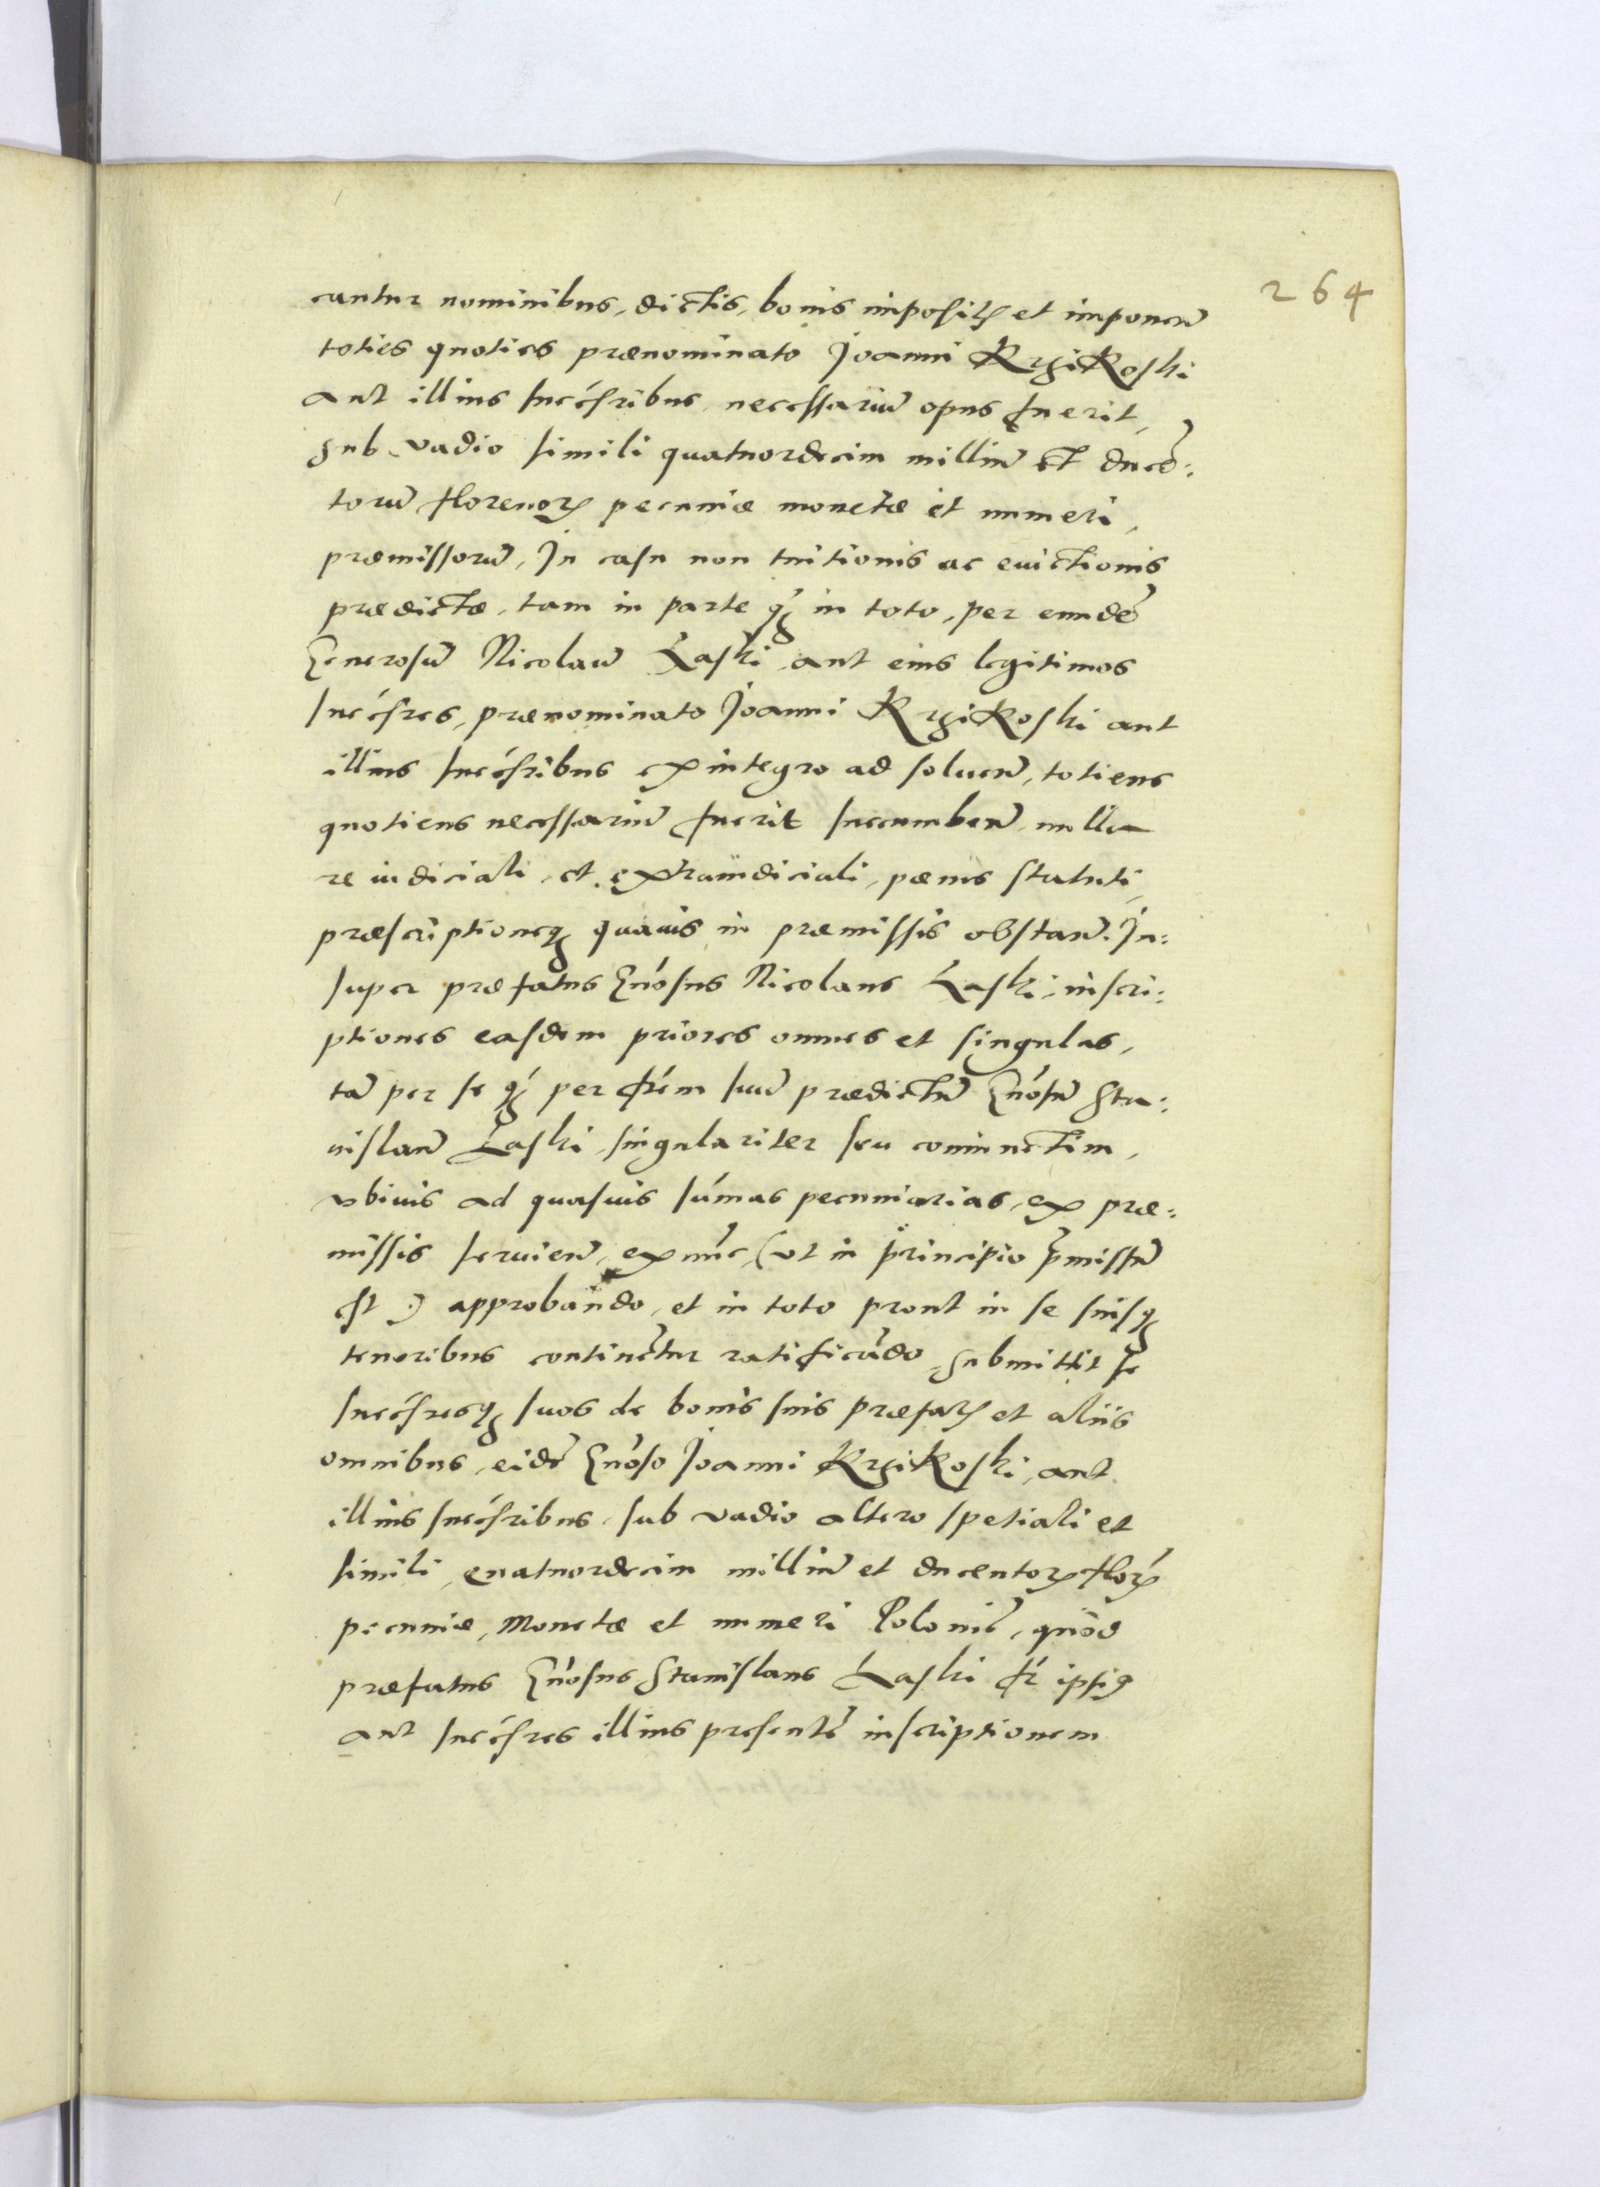 264
cantur nominibus, dictis, bonis imposit₎ et imponen̄
toties quoties prænominato Joanni KrziKoski
aut illius succ̄sribus, necessariū opus fuerit,
sub vadio simili quatuordecim milliū et ducē:
torū florenoꝝ pecuniæ monetæ et numeri,
præmissorū, Jn casu non tuitionis ac euictionis
prædictæ, tam in parte q̄ꝫ in toto, per eundē
Generosū Nicolaū Laski, aut eius legitimos
succ̄sres, prænominato Joanni KrziKoski aut
illius succ̄sribus ex integro ad soluen̄, totiens
quotiens necessariū fuerit succumben̄ nulla
re iudiciali, et extraiudiciali, pænis statuti,
præscriptioneqꝫ quauis in præmissis obstan̄. Jn:
super præfatus Gn̄osus Nicolaus Laski, inscri:
ptiones easdem priores omnes et singulas,
tā per se q̄ꝫ per frēm suū prædictū Gn̄osū Sta:
nislaū Laski, singulariter seu coniunctim,
vbiuis ad quasuis sum̄as pecuniarias, ex præ:
missis seruien̄, ex nūc, (vt in principio p̄missū
est :) approbando, et in toto prout in se suisqꝫ
tenoribus continētur ratificādo, submittit se
succ̄sresqꝫ suos de bonis suis præfat₎ et aliis
omnibus, eidē Gn̄oso Joanni KrziKoski, aut
illius succ̄sribus, sub vadio altero spetiali et
simili, quatuordecim milliū et ducentoꝝ floꝝ
pecuniæ, Monetæ et numeri Polonic̄, quōd
præfatus Gn̄osus Stanislaus Laski fr̄ ipsiꝯ
aut succ̄sres illius presentē inscriptionem